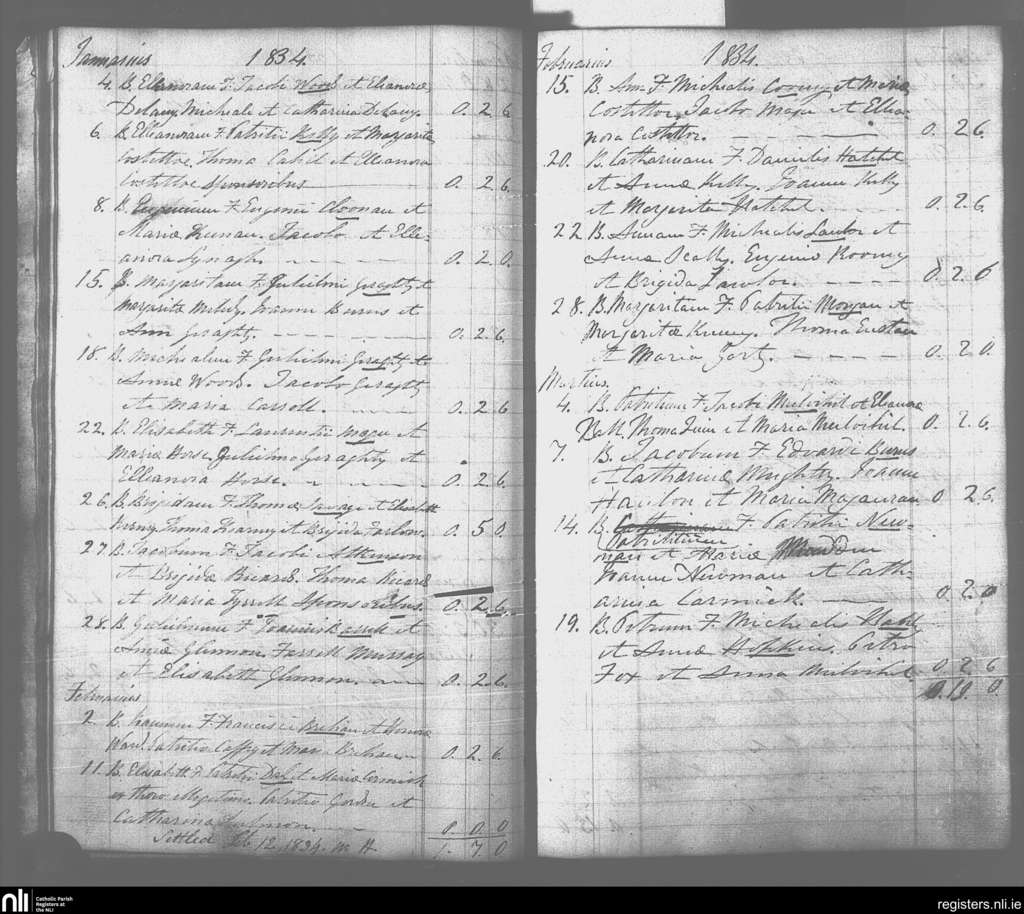 Januarius 1834.
4. B. Elleanoram F. Jacobi Woods et Eleanoræ
Delany, Micheale et Catharina Delany. 0. 2. 6
6. B. Elleanoram F. Patritii Kelly et Margarita
Costelloe. Thoma Cahil et Elleanora
Costelloe Sponsoribus 0. 2. 6.
8. B. F. Eugenii Cloonan et
Maria Keenan. Jacobo et Elle-
anora 0. 2. 0.
15. B. Margaritam F. Gulielmi Geraghty et
Margarita Joanne Burns et
Ann Geraghty. 0. 2. 6.
18. B. Michaelem F. Gulielmi Geraghty et
Annæ Woods. Jacobo Geraghty
et Maria Carroll. 0. 2. 6
22. B. Elisabeth F. Laurentii Magan et
Maria Horse. Gulielmo Geraghty et
Elleanora Horse. 0. 2. 6.
26. B. Brigidam F. Thomæ Savage et Elisabeth
Thoma Kearney et Brigida 0. 5 0.
27. B. Jacobum F. Jacobi Atkinson
et Brigidæ Ricard. Thoma Ricard
et Maria Tyrrell Sponsoribus. 0. 2. 6.
28. B. Gulielmum F. Joannis et
Annæ Glennon. Farrell Murray
et Elisabeth Glennon. 0. 2. 6.
Februarius
2. B. Joannem F. Francisci Brehan et Honora
Ward. Patritio Coffey et Maria Brehan 0. 2. 6
11. B. Elisabeth F. Patritii Daly et Maria Cormick
ex thoro illegitimo. Patritio Gordon et
Catharina 0. 0. 0
Settled Feb 12. 1834. M. H. 1. 7. 0
Februarius 1834.
15. B. Ann F. Michaelis Cooney et Maria
Costelloe. Jacobo Magan et Ellea-
nora Costelloe. 0. 2 6.
20. B. Catharinam F. Danielis Hatchel
et Annæ Kelly. Joanne Kelly
et Margarita Hatchel. 0. 2. 6.
22 B. Annam F. Michaelis Lawlor et
Annæ Scally. Eugenio Rooney
et Brigida Lawlor. 0. 2. 6
28. B. Margaritam F. Patritii Morgan et
Margaritæ Thoma
et Maria 0. 2 0.
Martius.
4. B. Patritium F. Jacobi Mulvihil et Eleanoræ
Ball. Thoma Quin et Maria Mulvihil. 0. 2. 6.
7. B. Jacobum F. Edvardi Burns
et Catharinæ Joanne
Hanlon et Maria Magauran 0 2 6.
14. B. Catharinam F. Patritii New-
Patritium
man et Maria
Joanne Newman et Cath-
arina Cormick. 0. 2. 0
19. B. Petrum F. Michaelis
et Annæ Hopkins. Petro
Fox et Anna Mulvihil 0 2 6
0. 19. 0
nli Catholic Parish
Registers at
the NLI
registers.nli.ie